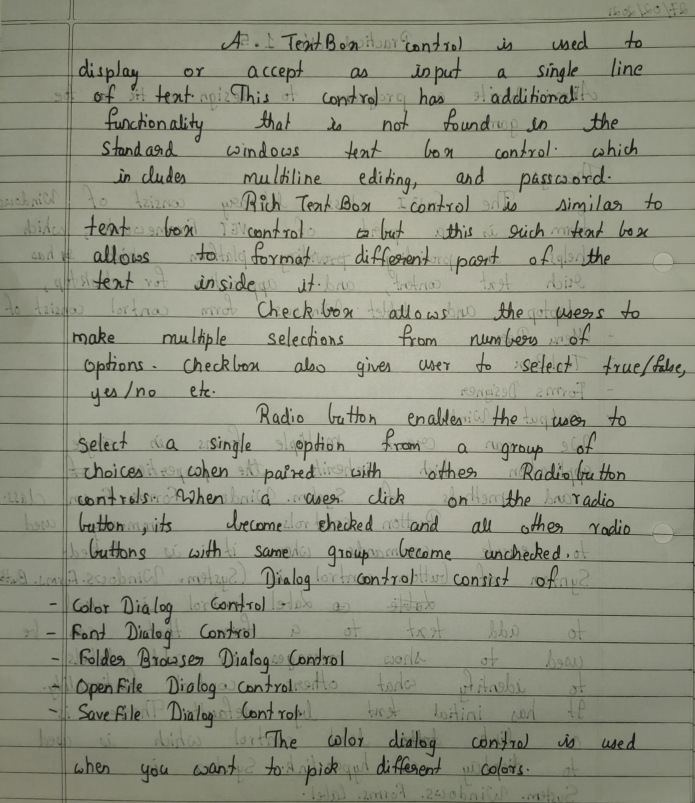 A. TextBox control is used to
display or accept as input a single line
of text. This control has additional
functionality that is not found in the
standard windows text box control. which
includes multiline editing, and password.
Rich TextBox control is similar to
text box control but this such text box
allows to format different part of the
text inside it.
Checkbox allows the users to
make multiple selections from numbers of
options. checkbox also gives user to select true/false,
yes/no etc.
Radio button enables the user to
select a single option from a group of
choices when paired with other Radio button
controls. When a user click on the radio
button, its become checked and all other radio
buttons with same group become unchecked.
Dialog control consist of
- Color Dialog Control
- Font Dialog Control
- Folder Browser Dialog Control
- OpenFile Dialog Control
- SaveFile Dialog Control.
The color dialog control is used
when you want to pick different colors.